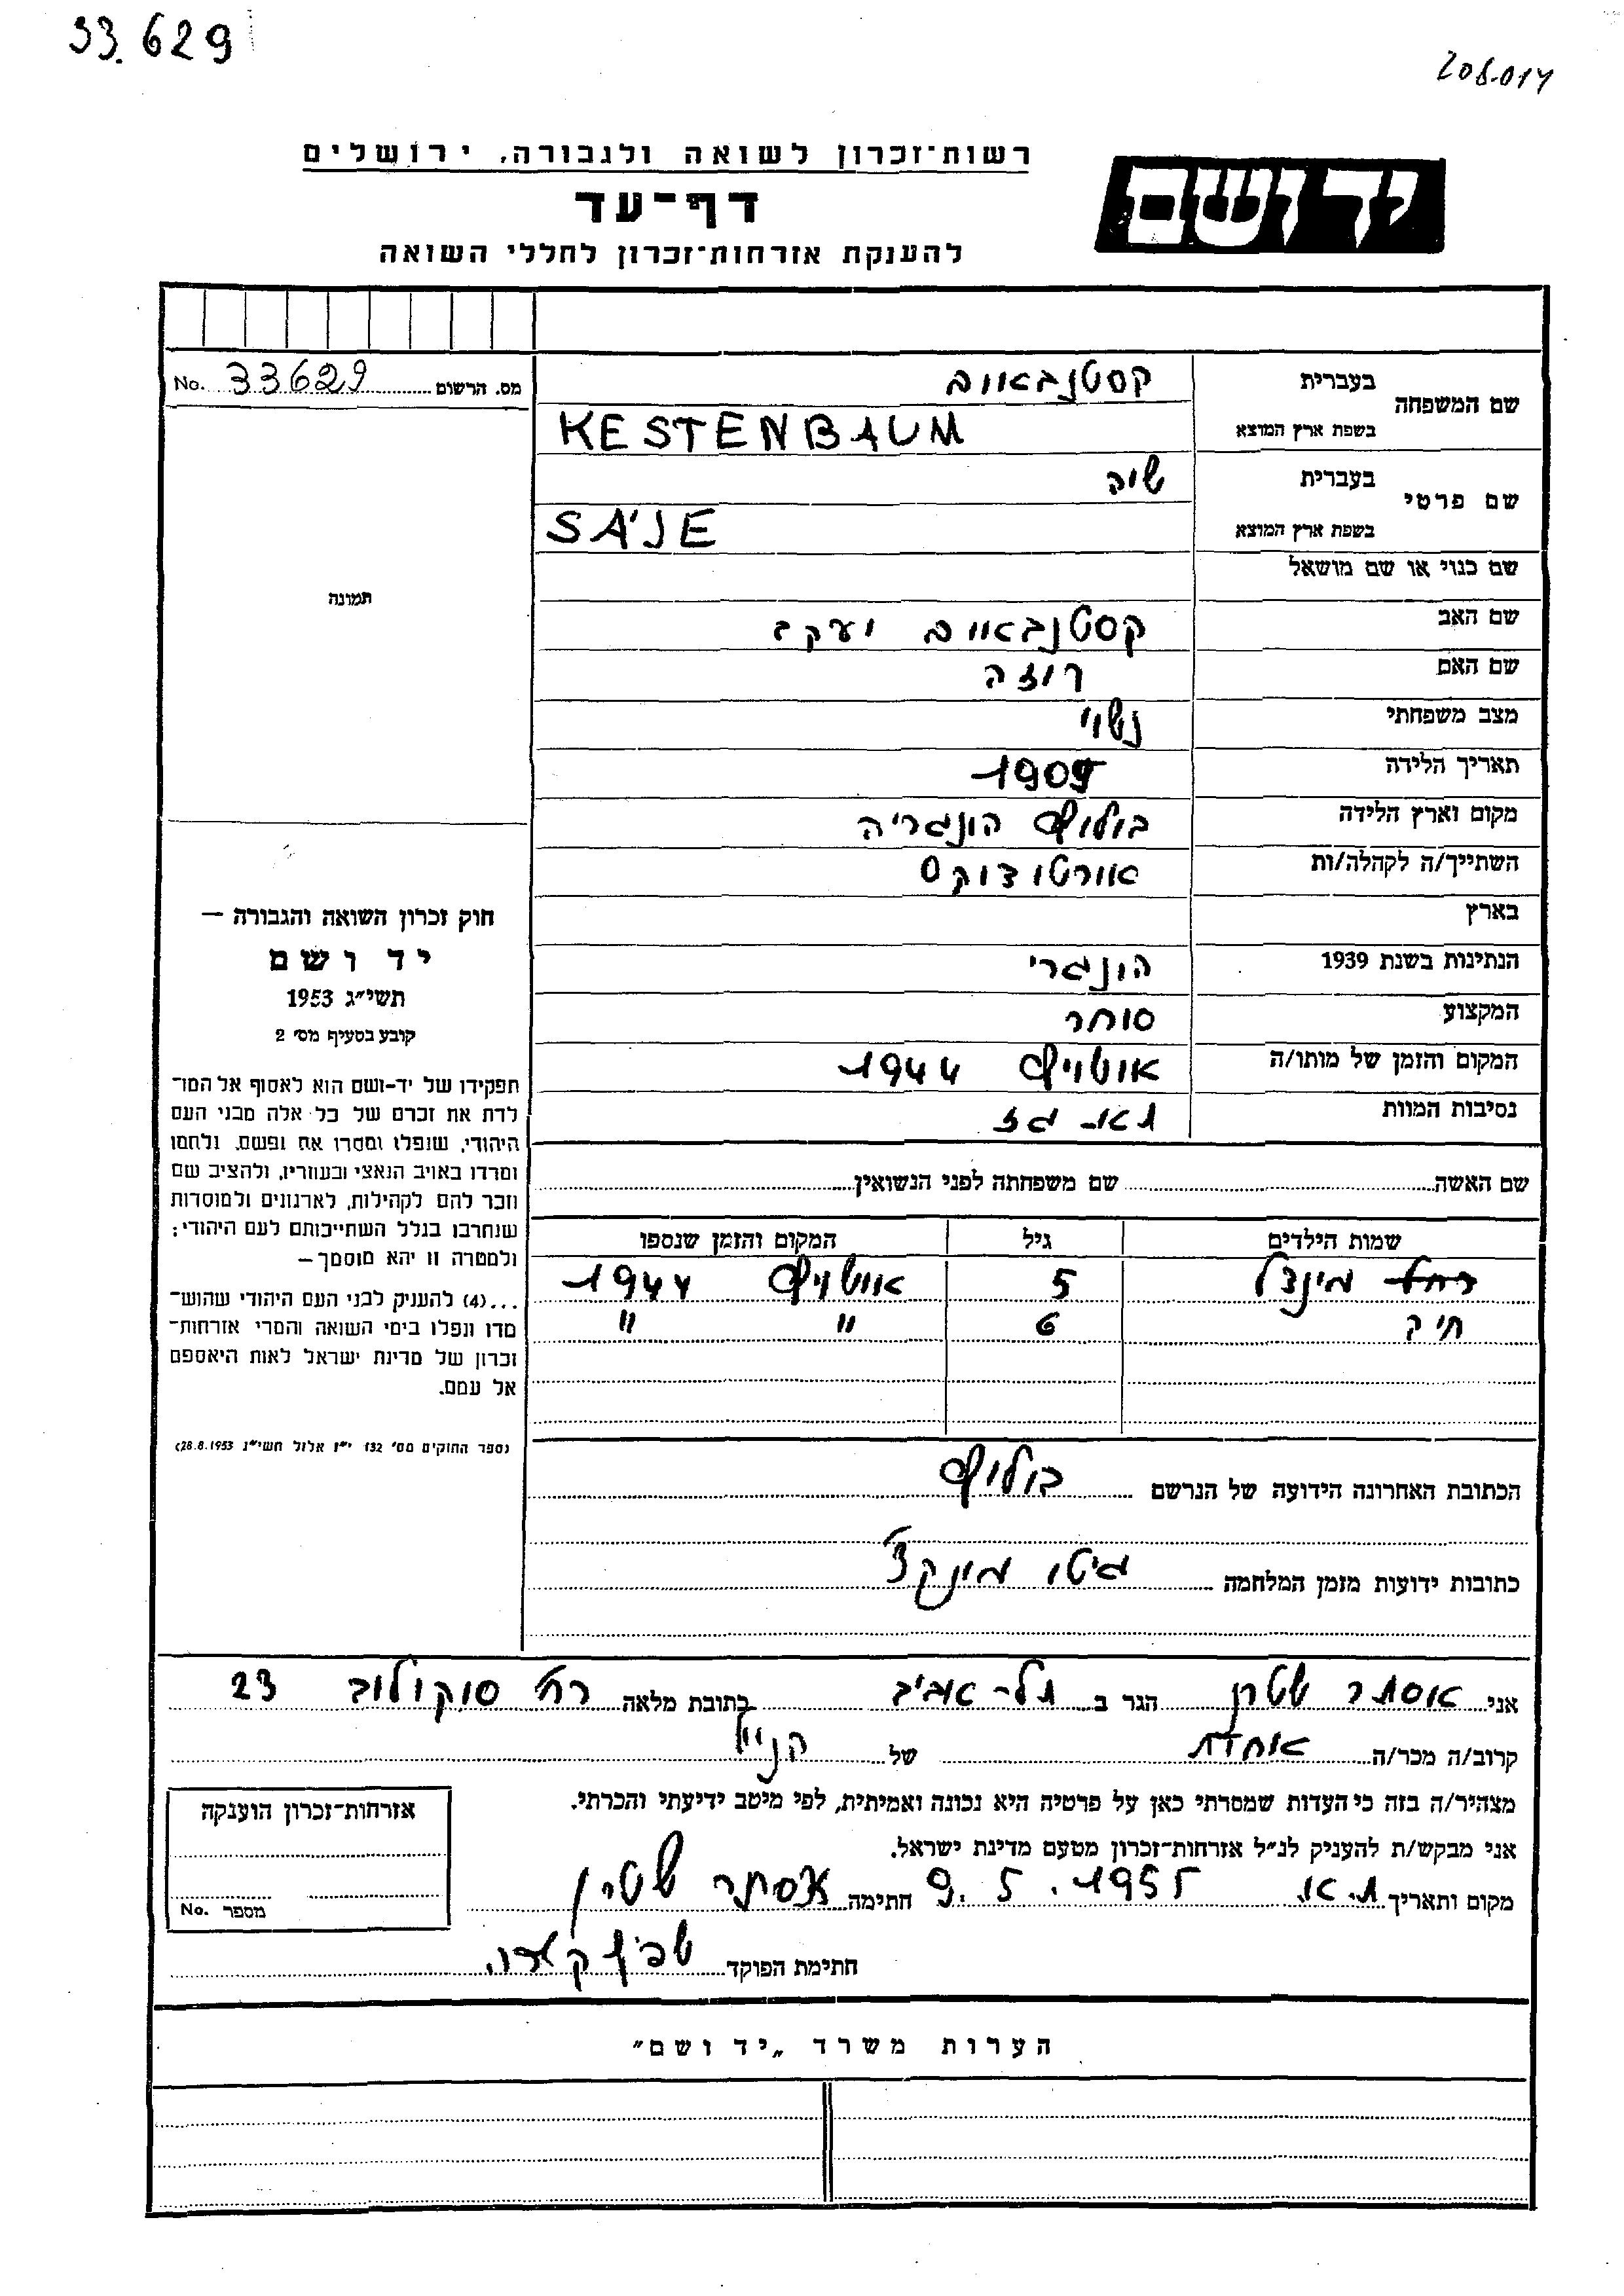 33.629
208.014
רשות־זכרון לשואה ולגבורה, ירושלים
דף־עד
להענקת אזרחות־זכרון לחללי השואה
יד ושם
מס. הרשום 33629 No.
שם המשפחה
בעברית קסטנבאום
בשפת ארץ המוצא KESTENBAUM
שם פרטי
בעברית שיה
בשפת ארץ המוצא SÁJE
שם כנוי או שם מושאל
שם האב קסטנבאום יעקב
שם האם רוזה
מצב משפחתי נשוי
תאריך הלידה 1909
מקום וארץ הלידה הונגריה
השתייך/ה לקהלה/ות אורטודוקס
בארץ
הנתינות בשנת 1939 הונגרי
המקצוע סוחר
המקום והזמן של מותו/ה אושויץ 1944
נסיבות המוות תא־גז
תמונה
חוק זכרון השואה והגבורה —
יד ושם
תשי״ג 1953
קובע בסעיף מס׳ 2
תפקידו של יד-ושם הוא לאסוף אל המו־
לדת את זכרם של כל אלה מבני העם
היהודי, שנפלו ומסרו את נפשם, נלחמו
ומרדו באויב הנאצי ובעוזריו, ולהציב שם
וזכר להם לקהילות, לארגונים ולמוסדות
שנחרבו בגלל השתייכותם לעם היהודי;
ולמטרה זו יהא מוסמך —
...(4) להעניק לבני העם היהודי שהוש־
מדו ונפלו בימי השואה והמרי אזרחות־
זכרון של מדינת ישראל לאות היאספם
אל עמם.
(ספר החוקים מס׳ 132 י״ז אלול תשי״ג 28.8.1953)
שם האשה שם משפחתה לפני הנשואין
שמות הילדים גיל המקום והזמן שנספו
רחל מינדל 5 אושויץ 1944
חיה 6 " "
הכתובת האחרונה הידועה של הנרשם
כתובות ידועות מזמן המלחמה גיטו מונקץ'
אני אסתר שטרן הגר ב תל־אביב כתובת מלאה רח' סוקולוב 23
קרוב/ה מכר/ה אחות של הנ״ל
מצהיר/ה בזה כי העדות שמסרתי כאן על פרטיה היא נכונה ואמיתית, לפי מיטב ידיעתי והכרתי.
אני מבקש/ת להעניק לנ״ל אזרחות־זכרון מטעם מדינת ישראל.
מקום ותאריך ת.א. 9.5.1955 חתימה אסתר שטרן
חתימת הפוקד
אזרחות־זכרון הוענקה
מספר No.
הערות משרד „יד ושם"